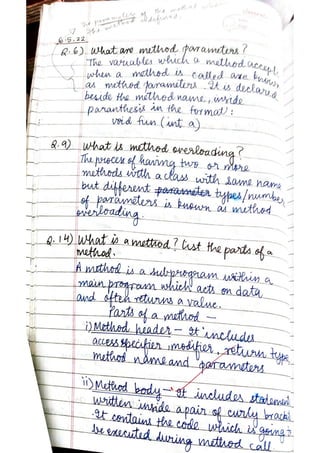 the parameters of the method when
the method defined.
6.5.22
Q.6) What are method parameters?
The variables which a method accept
when a method is called are known
as method parameters. It is declared
beside the method name, inside
paranthesis in the format:
void fun (int a)
Q.9) What is method overloading?
The process of having two or more
methods with a class with same name
but different parameter types/number
of parameters is known as method
overloading.
Q.14) What is a method? List the parts of a
method.
A method is a subprogram within a
main program which acts on data
and often returns a value.
Parts of a method —
i) Method header - It includes
access specifier, modifier, return type,
method name and parameters
ii) Method body - It includes statement
written inside a pair of curly bracket
It contains the code which is going to
be executed during method call